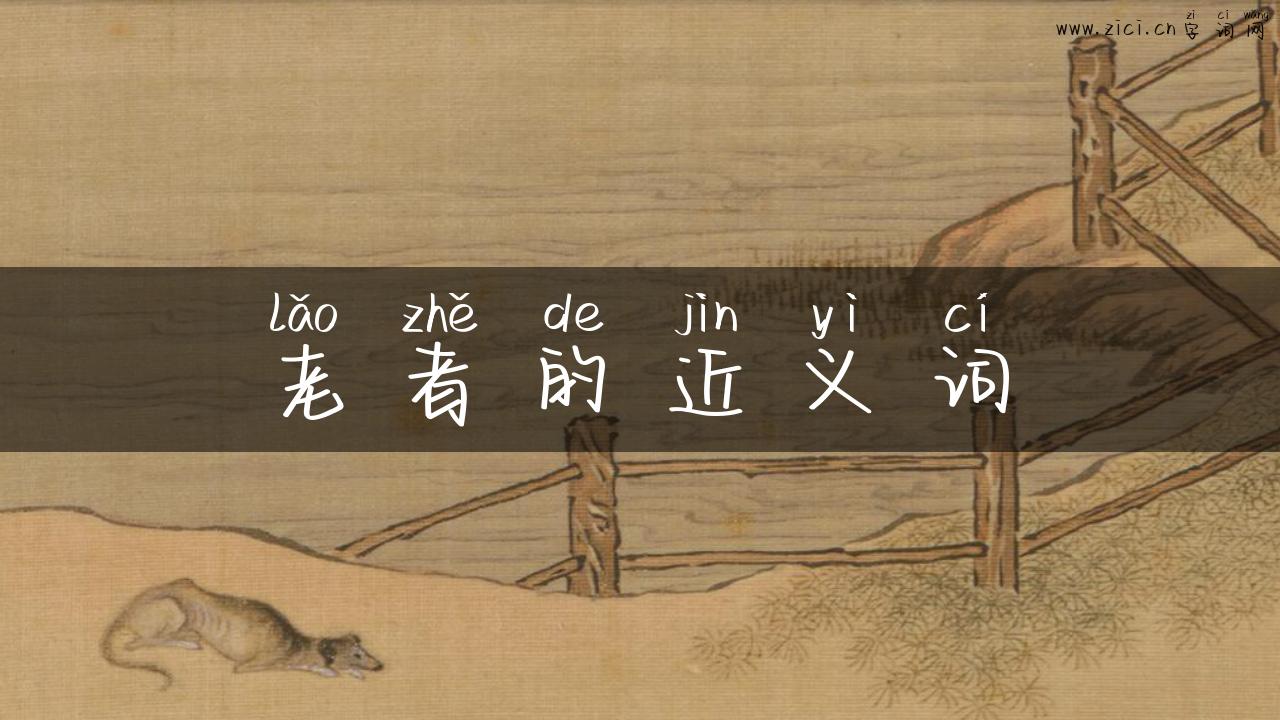 zì cí wǎng
www.zici.cn 字词网
lǎo zhě de jìn yì cí
老者的近义词